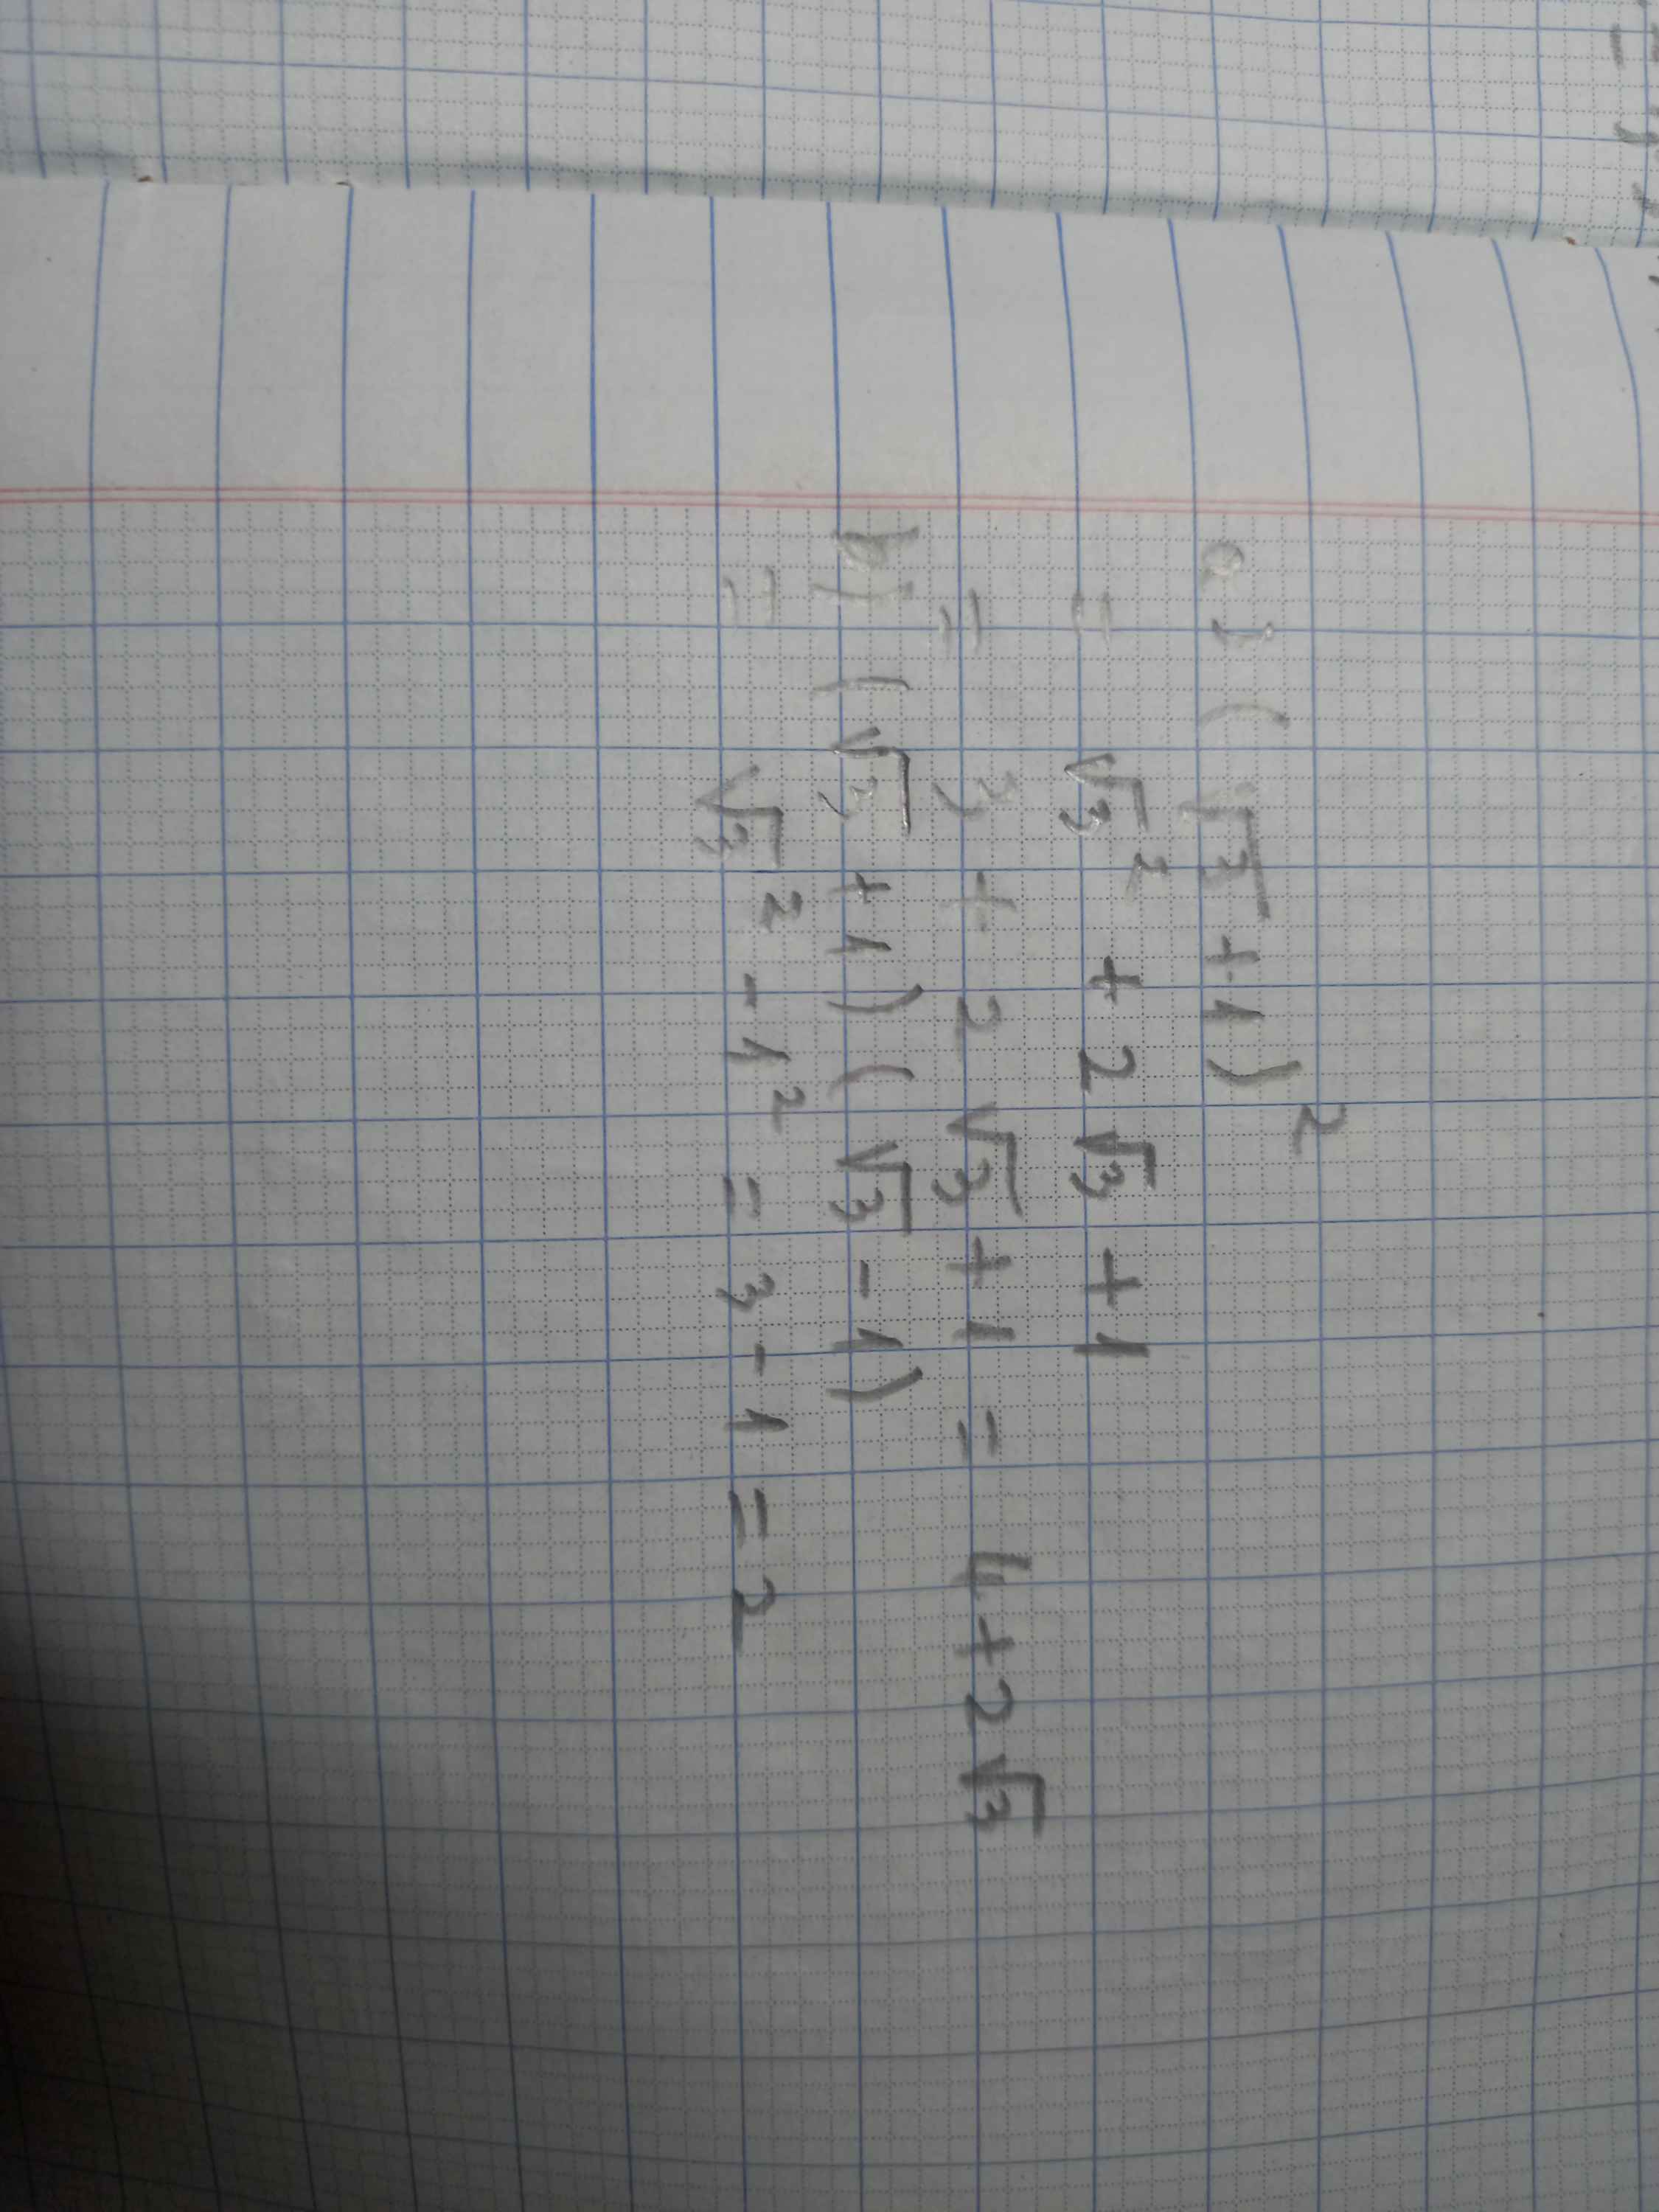 a) (√3 + 1)²
= √3² + 2√3 + 1
= 3 + 2√3 + 1 = 4 + 2√3
b) (√3 + 1)(√3 - 1)
= √3² - 1² = 3 - 1 = 2